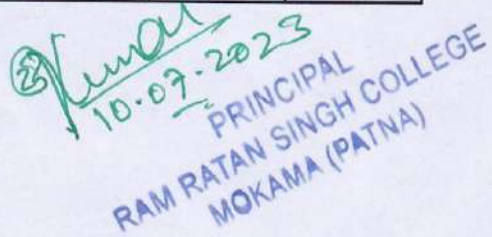 Kumar
10.07.2023
PRINCIPAL
RAM RATAN SINGH COLLEGE
MOKAMA (PATNA)